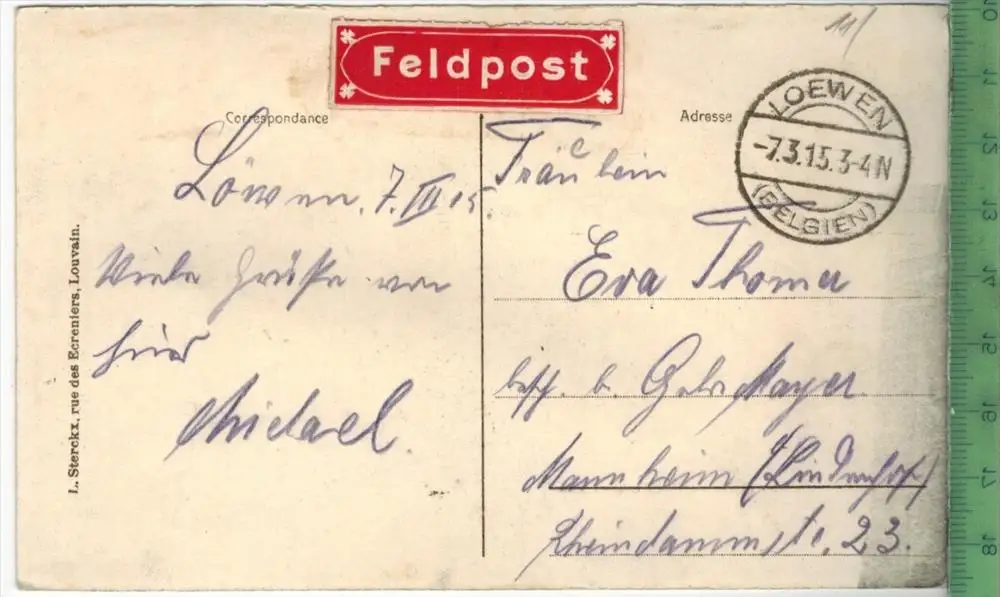 Feldpost
11/
Correspondance
Adresse
LOEWEN
-7.3.15.3-4N
(BELGIEN)
Löwen, 7. III 15.
Viele Grüße von
hier
Michael
Fräulein
Eva Thoma
besch. b. Gebr. Mayer
Mannheim (Lindenhof)
Rheindammstr. 23.
L. Sterckx, rue des Ecreniers, Louvain.
10
11
12
13
14
15
16
17
18